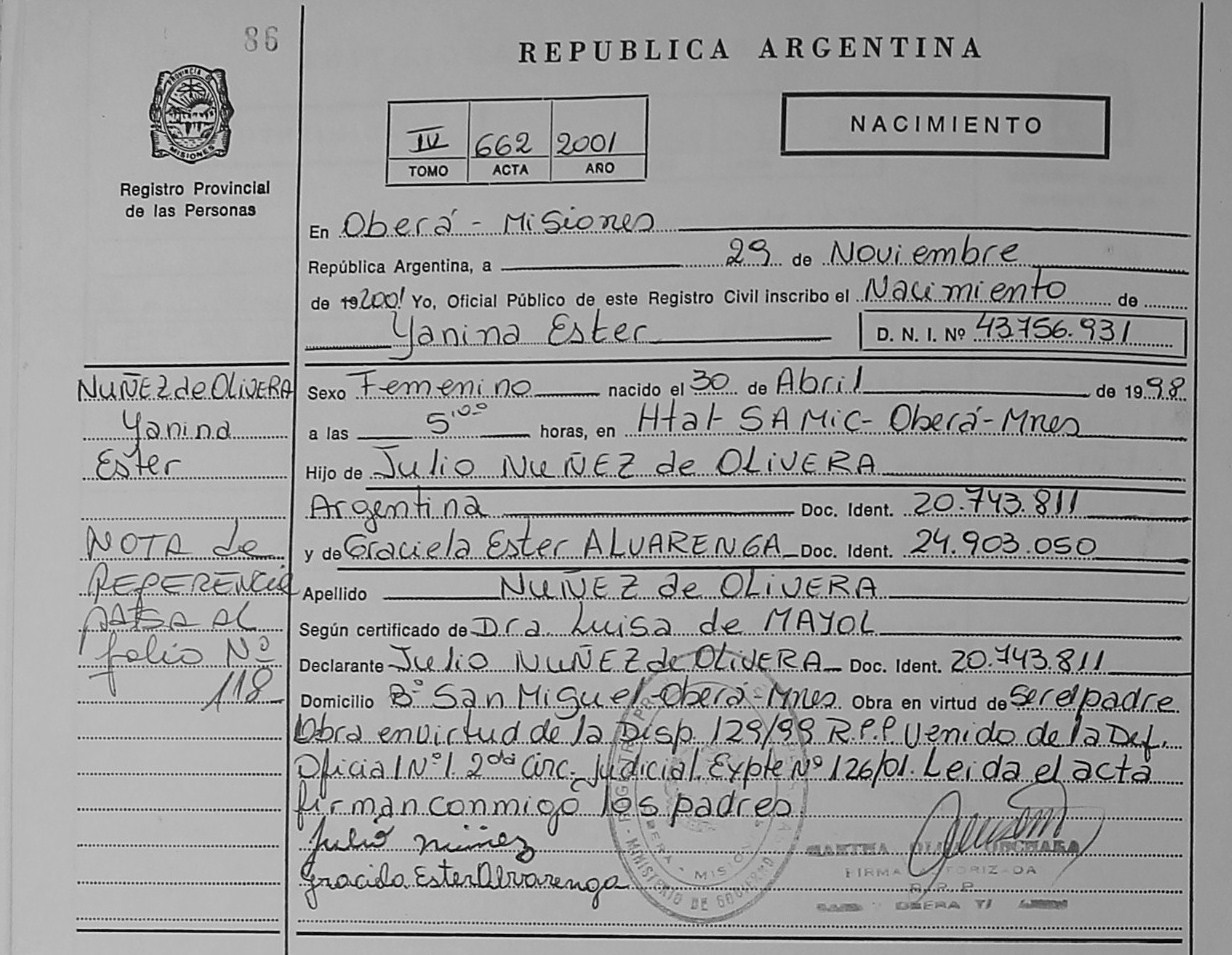 86
REPUBLICA ARGENTINA
PROVINCIA D
MISIONES
Registro Provincial
de las Personas
IV 662 2001
TOMO ACTA AÑO
NACIMIENTO
En Oberá - Misiones
República Argentina, a 29 de Noviembre
de 192001 Yo, Oficial Público de este Registro Civil inscribo el Nacimiento de
Yanina Ester D. N. I. Nº 43.756.931
NUÑEZ de OLIVERA
Yanina
Ester
NOTA de
REFERENCIA
PASA AL
folio Nº
118
Sexo Femenino nacido el 30 de Abril de 1998
a las 5'00 horas, en Htal SAMIC- Oberá-Mnes
Hijo de Julio NUÑEZ de OLIVERA
Argentina Doc. Ident. 20.743.811
y de Graciela Ester ALVARENGA Doc. Ident. 24.903.050
Apellido NUÑEZ de OLIVERA
Según certificado de Dra Luisa de MAYOL
Declarante Julio NUÑEZ de OLIVERA Doc. Ident. 20.743.811
Domicilio Bº San Miguel-Oberá-Mnes. Obra en virtud de ser el padre
Obra en virtud de la Disp. 129/99 R.P.P Venido de la Def.
Oficial Nº1. 2da Circ. Judicial. Expte Nº 126/01. Leida el acta
firman conmigo los padres.
Julio Núñez
Graciela Ester Alvarenga
MINISTERIO DE GOBIERNO
OBERA - MISIONES
MARTHA
FIRMA AUTORIZADA
R. P. P.
OBERA